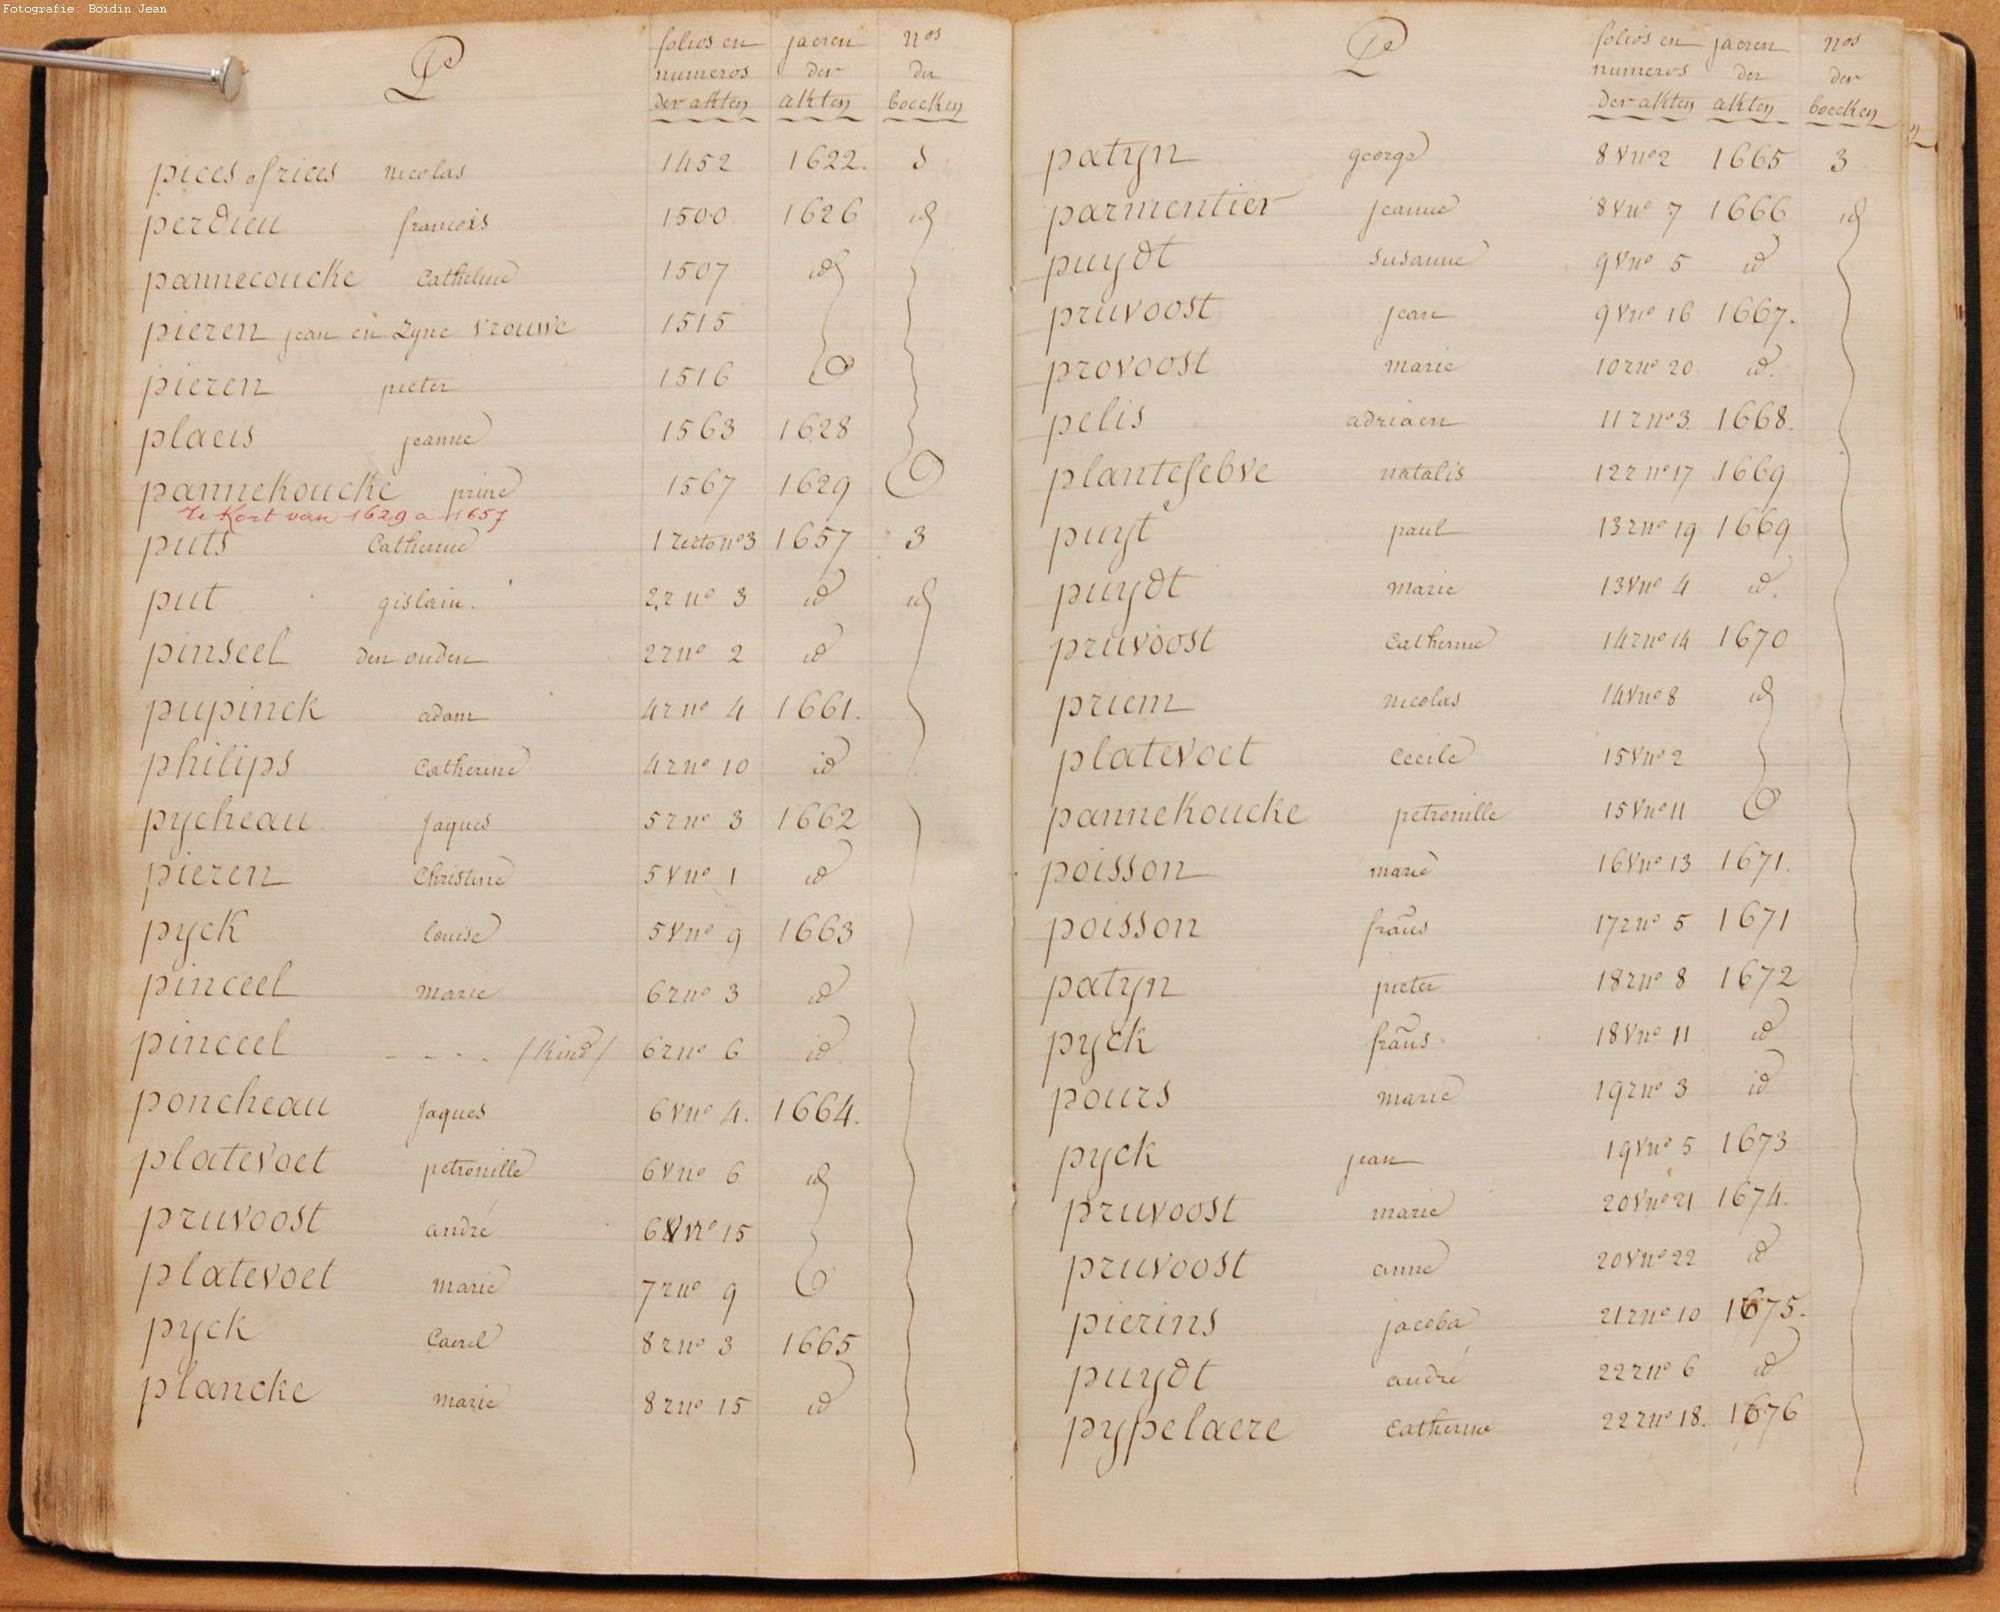 Fotografie. Boidin Jean
P
folios en numeros der akten
jaeren der akten
nos der boecken
pices of rices nicolas 1452 1622.
perdieu francois 1500 1626 id
pannecoucke Catheline 1507 id
pieren jean en Zyne vrouwe 1515
pieren pieter 1516
placis jeanne 1563 1628
pannekoucke prine 1567 1629
te Kort van 1629 a 1657
puts Catherine 1 recto no 3 1657 3
put gislain. 2 r no 3 id id
pinseel den ouden 2 r no 2 id
pupinck adam 4 r no 4 1661.
philips Catherine 4 r no 10 id
pycheau jaques 5 r no 3 1662
pieren Christine 5 v no 1 id
pyck louise 5 v no 9 1663
pinceel marie 6 r no 3 id
pinceel - - - - /Kind/ 6 r no 6 id
poncheau jaques 6 v no 4. 1664.
platevoet petronille 6 v no 6 id
pruvoost andré 6 v no 15
platevoet marie 7 r no 9
pyck Caerel 8 r no 3 1665
plancke marie 8 r no 15 id
P
folios en numeros der akten
jaeren der akten
nos der boecken
patyn george 8 v no 2 1665 3
parmentier jeanne 8 v no 7 1666 id
puydt susanne 9 v no 5 id
pruvoost jean 9 v no 16 1667.
provoost marie 10 r no 20 id.
pelis adriaen 11 r no 3 1668.
plantefebve natalis 12 r no 17 1669
puyt paul 13 r no 19 1669
puydt marie 13 v no 4 id.
pruvoost Catherine 14 r no 14 1670
priem nicolas 14 v no 8 id
platevoet Cecile 15 v no 2
pannekoucke petronille 15 v no 11
poisson marie 16 v no 13 1671.
poisson fraus 17 r no 5 1671
patyn pieter 18 r no 8 1672
pyck fraus 18 v no 11 id
pours marie 19 r no 3 id
pyck jean 19 v no 5 1673
pruvoost marie 20 v no 21 1674.
pruvoost anne 20 v no 22 id
pierins jacoba 21 r no 10 1675.
puydt andré 22 r no 6 id
pypelaere Catherine 22 r no 18. 1676